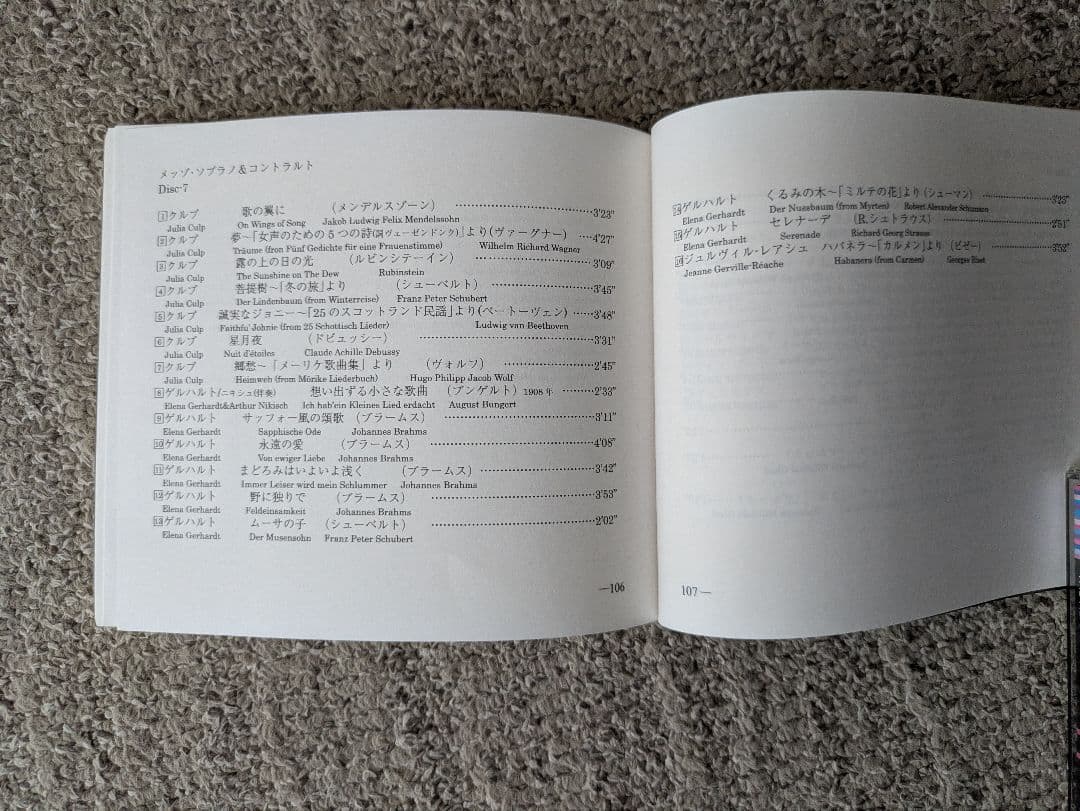 メッゾ・ソプラノ&コントラルト
Disc-7
1 クルプ 歌の翼に (メンデルスゾーン) 3'23"
Julia Culp On Wings of Song Jakob Ludwig Felix Mendelssohn
2 クルプ 夢~「女声のための5つの詩(詞ヴェーゼンドンク)」より(ヴァーグナー) 4'27"
Julia Culp Träume (fron Fünf Gedichte für eine Frauenstimme) Wilhelm Richard Wagner
3 クルプ 露の上の日の光 (ルビンシテーイン) 3'09"
Julia Culp The Sunshine on The Dew Rubinstein
4 クルプ 菩提樹~「冬の旅」より (シューベルト) 3'45"
Julia Culp Der Lindenbaum (from Winterreise) Franz Peter Schubert
5 クルプ 誠実なジョニー~「25のスコットランド民謡」より(ベートーヴェン) 3'48"
Julia Culp Faithfu' Johnie (from 25 Schottisch Lieder) Ludwig van Beethoven
6 クルプ 星月夜 (ドビュッシー) 3'31"
Julia Culp Nuit d'étoiles Claude Achille Debussy
7 クルプ 郷愁~「メーリケ歌曲集」より (ヴォルフ) 2'45"
Julia Culp Heimweh (from Mörike Liederbuch) Hugo Philipp Jacob Wolf
8 ゲルハルト/ニキシュ(伴奏) 想い出ずる小さな歌曲 (ブンゲルト) 1908年 2'33"
Elena Gerhardt&Arthur Nikisch Ich hab'ein Kleines Lied erdacht August Bungert
9 ゲルハルト サッフォー風の頌歌 (ブラームス) 3'11"
Elena Gerhardt Sapphische Ode Johannes Brahms
10 ゲルハルト 永遠の愛 (ブラームス) 4'08"
Elena Gerhardt Von ewiger Liebe Johannes Brahms
11 ゲルハルト まどろみはいよいよ浅く (ブラームス) 3'42"
Elena Gerhardt Immer Leiser wird mein Schlummer Johannes Brahms
12 ゲルハルト 野に独りで (ブラームス) 3'53"
Elena Gerhardt Feldeinsamkeit Johannes Brahms
13 ゲルハルト ムーサの子 (シューベルト) 2'02"
Elena Gerhardt Der Musensohn Franz Peter Schubert
—106
14 ゲルハルト くるみの木~「ミルテの花」より (シューマン) 3'23"
Elena Gerhardt Der Nussbaum (from Myrten) Robert Alexander Schumann
15 ゲルハルト セレナーデ (R.シュトラウス) 2'51"
Elena Gerhardt Serenade Richard Georg Strauss
16 ジェルヴィル・レアシュ ハバネラ~「カルメン」より (ビゼー) 3'32"
Jeanne Gerville-Réache Habanera (from Carmen) Georges Bizet
107—